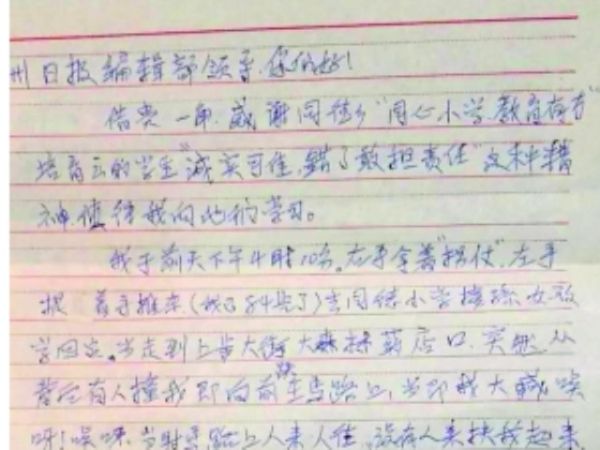 州日报编辑部领导.你们好!
借贵一角.感谢同德乡"同心小学.教育有方"
培育出的学生"诚实可佳,错了敢担责任"这种精
神.值得我向他们学习。
我于前天下午4时10分。左手拿着"拐仗".左手
扶着手推车.(我84岁了)去同德小学接孙女放
学回家。当走到上步大街大森林药店口.突然.从
背后有人撞我即向前 马路上.当即我大喊 唉
呀!唉呀.当时马路上人来人往.没有人来扶我起来.